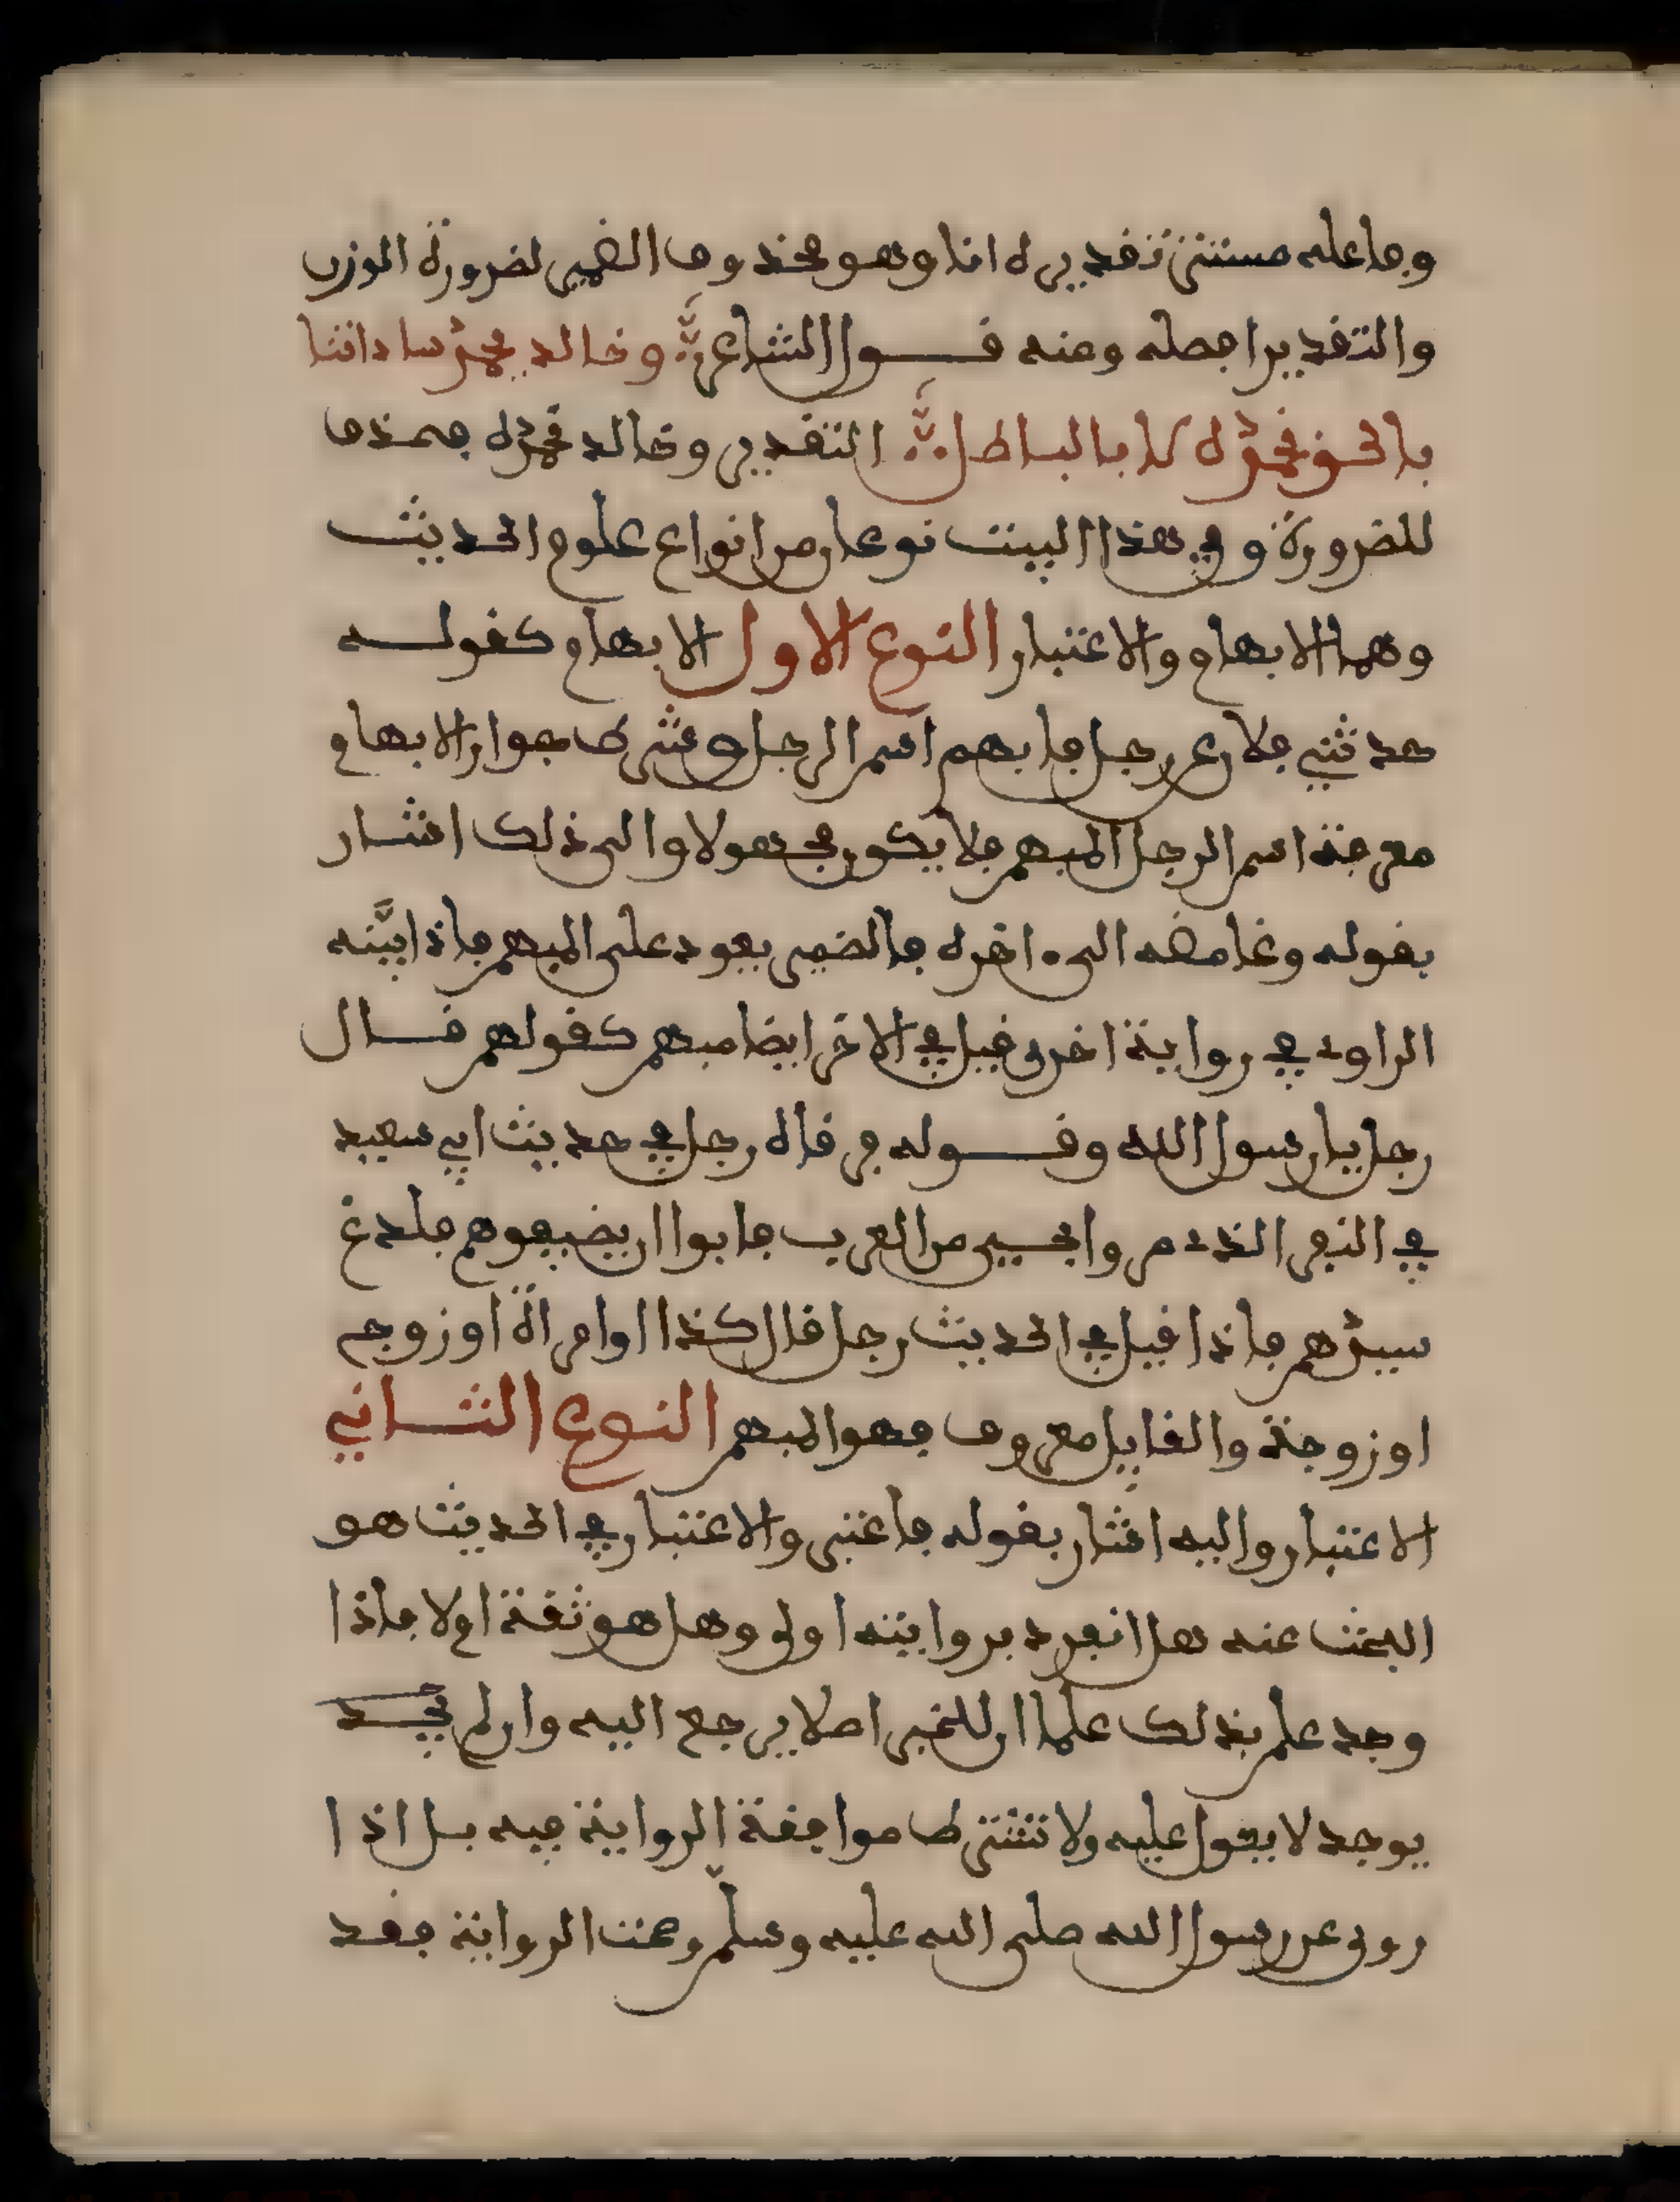 وفاعله مستتر تقديره انا وهو محذوف الضمير لضرورة الوزن
والتقدير افصله ومنه قول الشاعر وخالد يحمد ساداتنا
بالحق نحمده لا بالباطل التقدير وخالد نحمده فحذف
للضرورة وفي هذا البيت نوعان من انواع علوم الحديث
وهما الابهام والاعتبار النوع الاول الابهام كقوله
حدثني فلان عن رجل فابهم اسم الرجل وشرط جواز الابهام
معرفة اسم الرجل المبهم فلا يكون مجهولا والى ذلك اشار
بقوله وغامضه الى ءاخره فالضمير يعود على المبهم فاذا بينه
الراوي في رواية اخرى قيل في الاخر ايضا مبهم كقولهم قال
رجل يا رسول الله وقوله فرقاه رجل في حديث ابي سعيد
في النفر الذي مروا بحيي من العرب فابوا ان يضيفوهم فلدغ
سيدهم فاذا قيل في الحديث رجل قال كذا او امراة او زوج
او زوجة والقايل معروف فهو المبهم النوع الثاني
الاعتبار واليه اشار بقوله فاعتبر والاعتبار في الحديث هو
البحث عنه هل انفرد بروايته اولى وهل هو ثقة او لا فاذا
وجد علم بذلك علما ان للخبر اصلا يرجع اليه وان لم يجد
يوجد لا يعول عليه ولا تشترط موافقة الرواية فيه بل اذا
روى عن رسول الله صلى الله عليه وسلم وصحت الرواية فقد